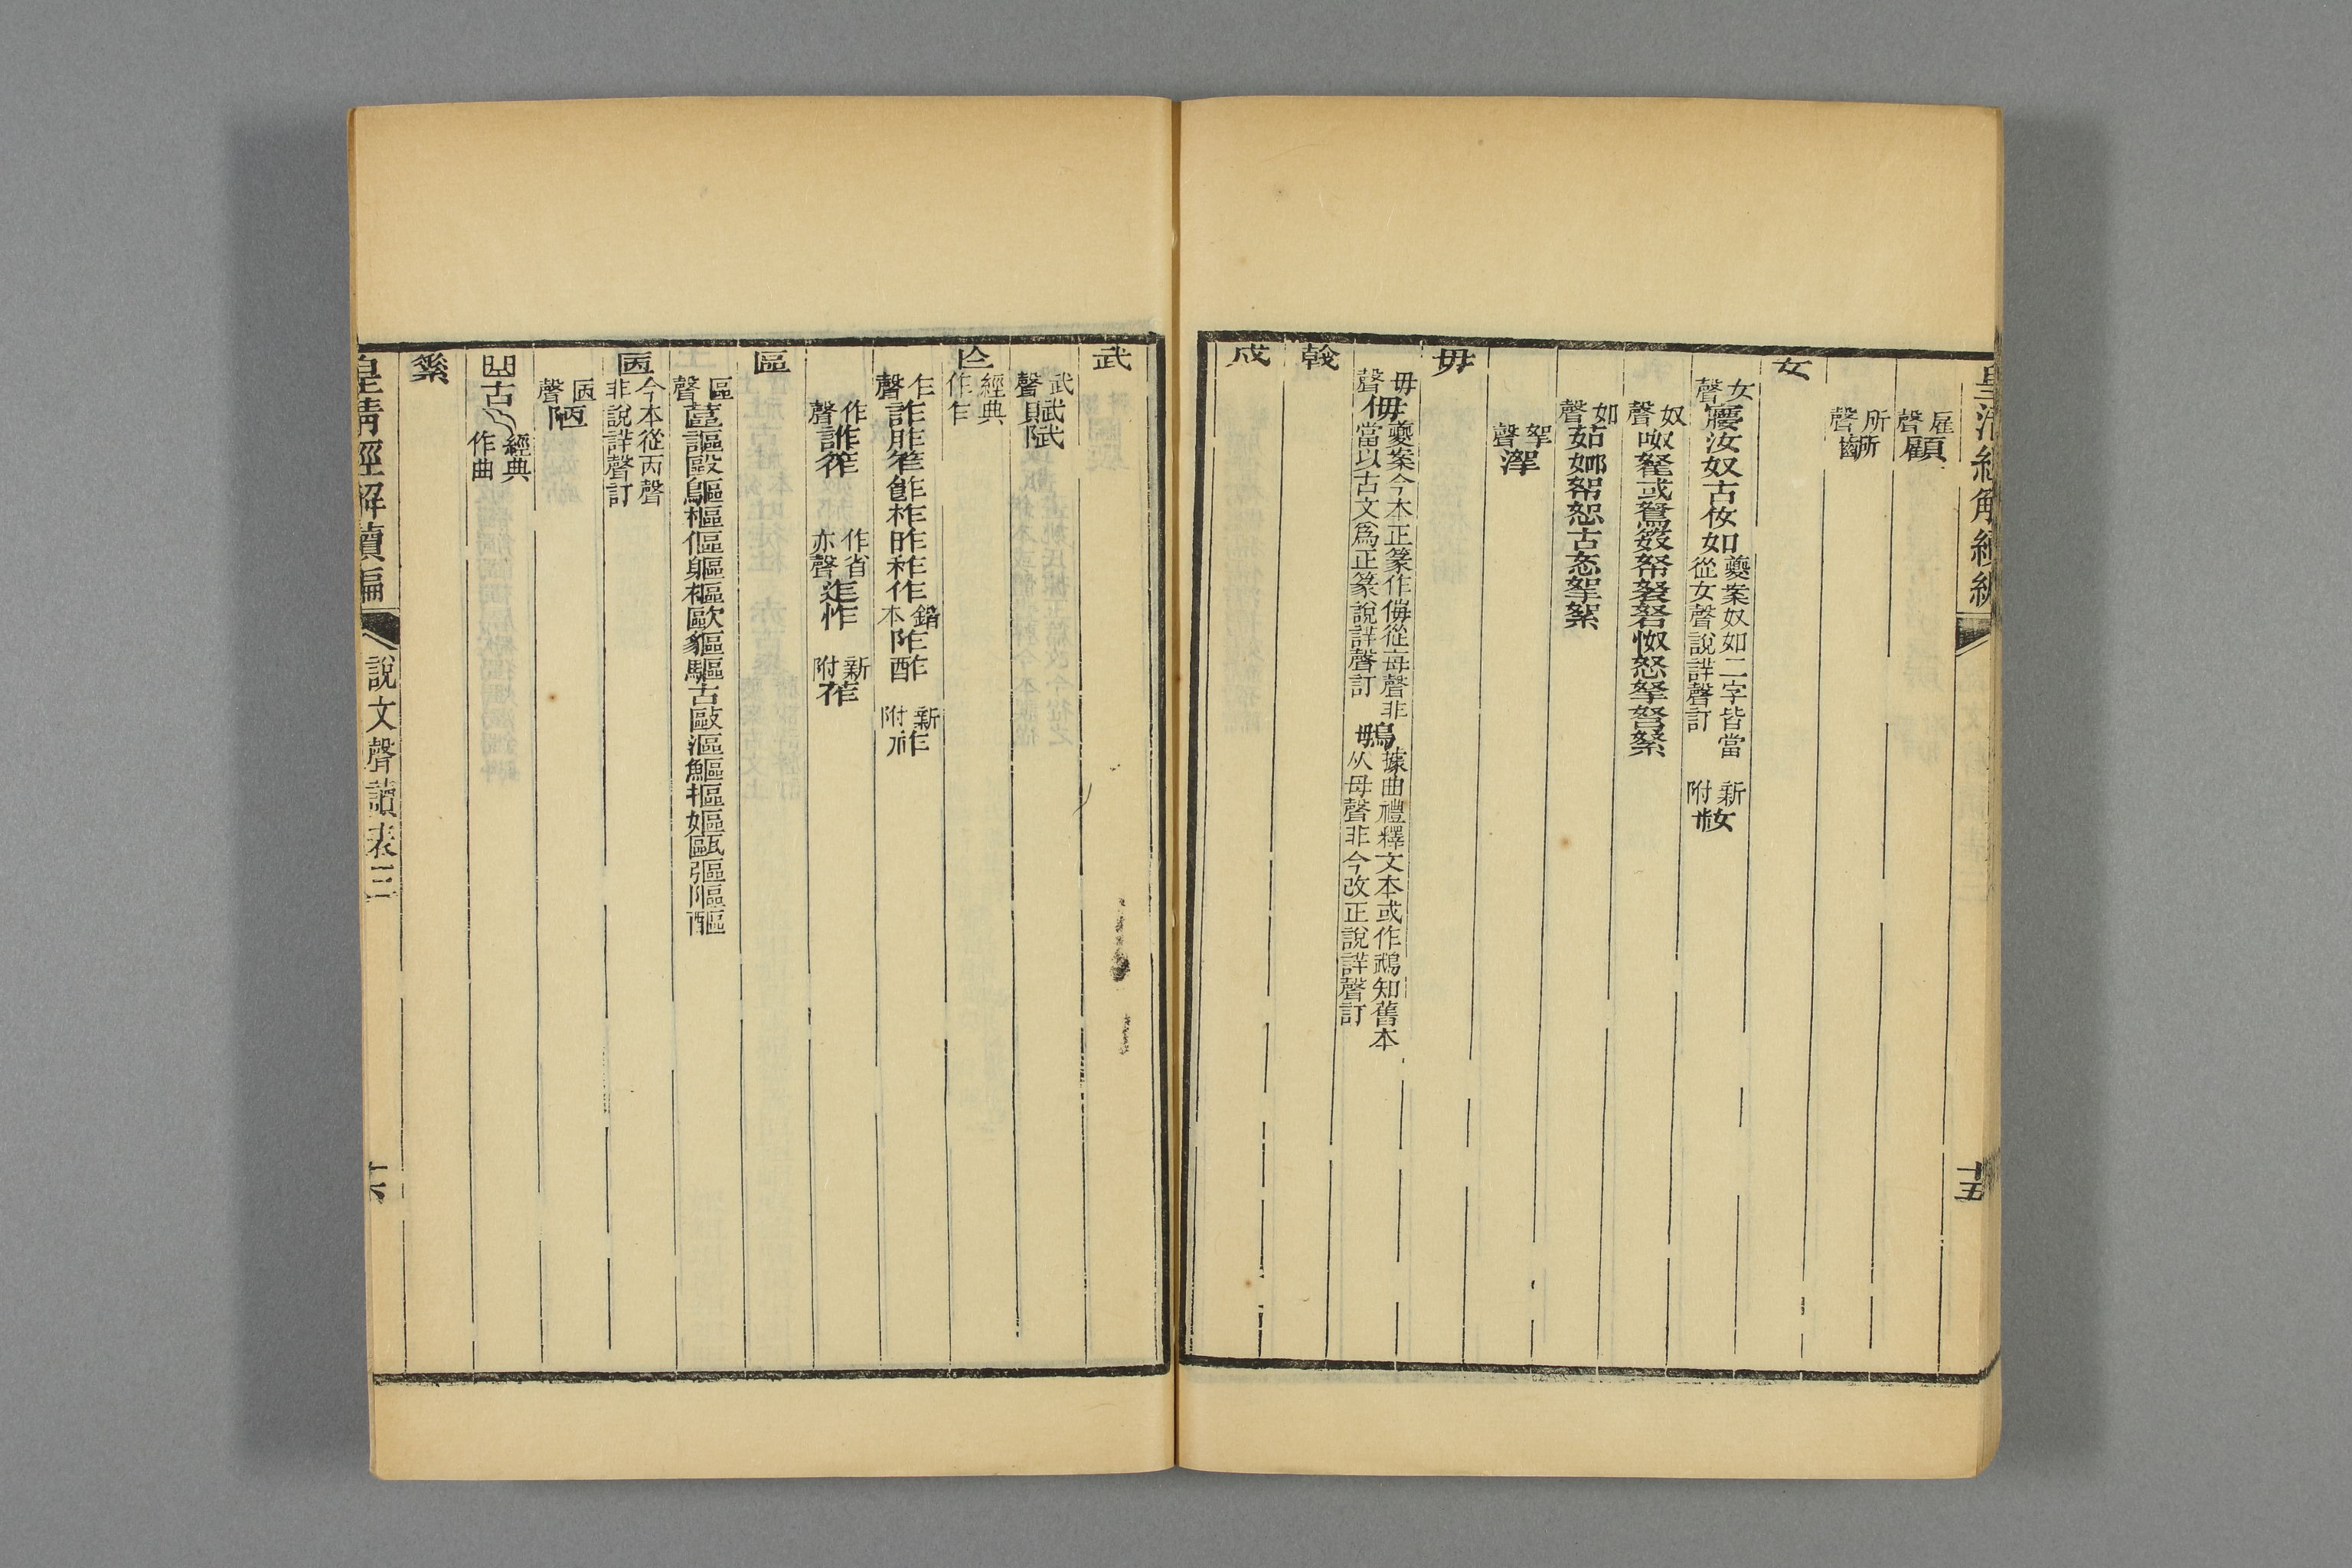 皇清經解續編
十五
雇聲顧
所聲𪙉
女
女聲㜳汝奴古㚢如夔案奴如二字皆當從女聲說詳聲訂 新附籹
奴聲呶䎟或鴑笯帑砮怓怒拏弩絮
如聲茹帤恕古㣽挐絮
挐聲
毋
毋聲侮夔案今本正篆作侮從每聲非當以古文爲正篆說詳聲訂 䳇據曲禮釋文本或作鵡知舊本从母聲非今改正說詳聲訂
戟
戍
武
武聲賦
亾經典作乍
乍聲詐胙笮飵柞昨秨作阼鍇本酢 新附祚
作聲 作省亦聲迮怍 新附
區
區聲蓲謳毆樞傴軀樞歐貙驅古敺漚鰸摳嫗甌彄䧢醧
㔷今本從丙聲非說詳聲訂
㔷聲陋
古經典作曲
皇清經解續編
說文聲讀表三
十六